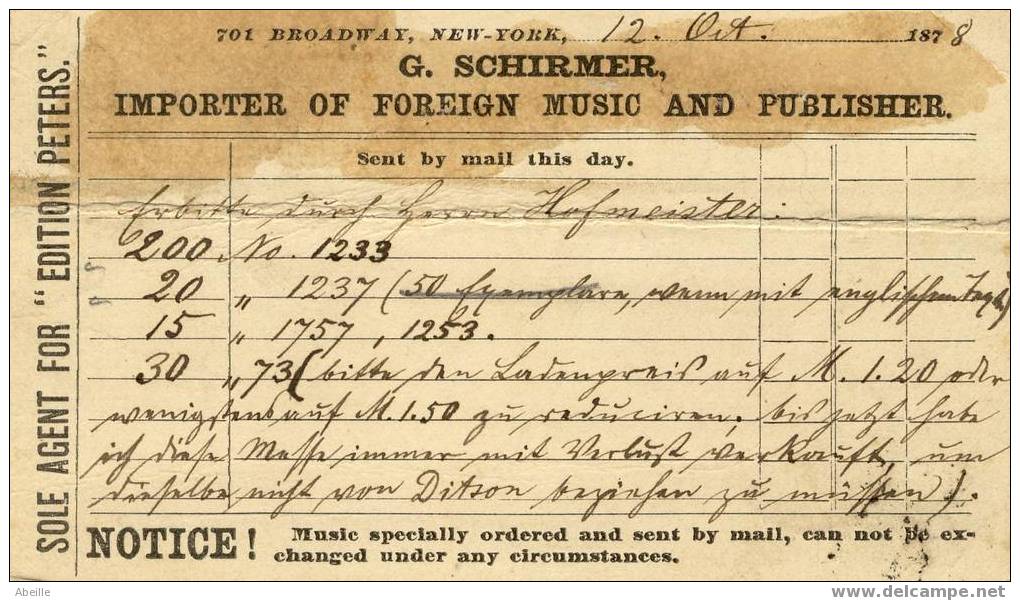 701 BROADWAY, NEW-YORK, 12. Oct. 1878
G. SCHIRMER,
IMPORTER OF FOREIGN MUSIC AND PUBLISHER.
SOLE AGENT FOR "EDITION PETERS."
Sent by mail this day.
Erbitte durch Herrn Hofmeister:
200 No. 1233
20 " 1237 (50 Exemplare, wenn mit englischem Text)
15 " 1757, 1253.
30 " 73 (bitte den Ladenpreis auf M. 1.20 oder
wenigstens auf M. 1.50 zu reduciren, bis jetzt habe
ich diese Messe immer mit Verlust verkauft, um
dieselbe nicht von Ditson beziehen zu müssen).
NOTICE! Music specially ordered and sent by mail, can not be ex-
changed under any circumstances.
Abeille
www.delcampe.net